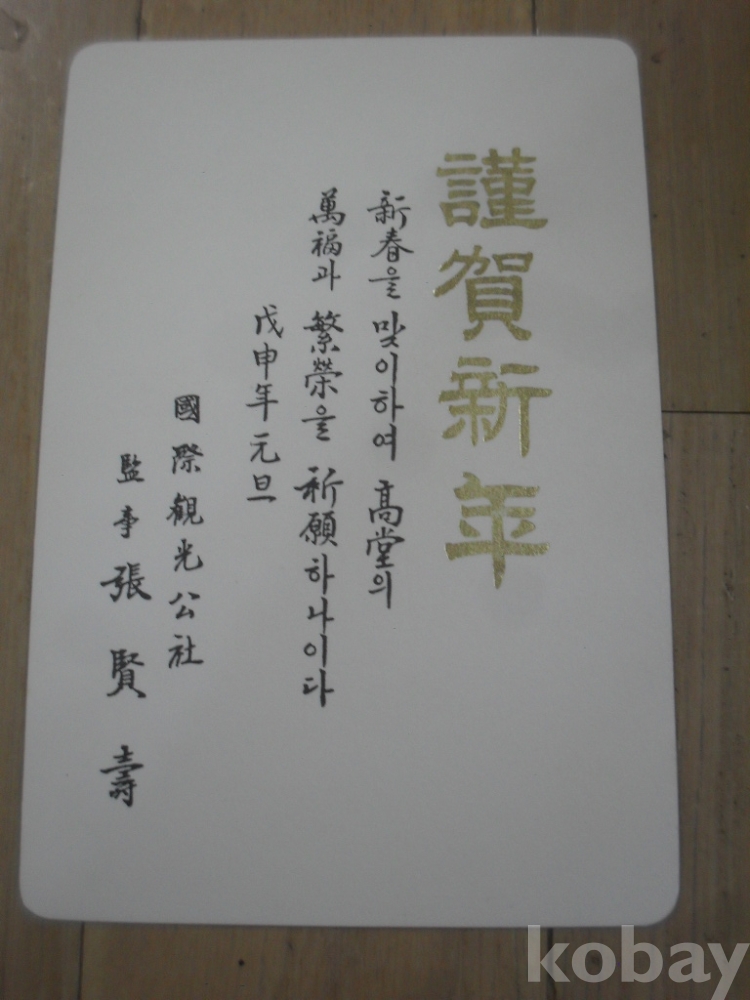 謹賀新年
新春을 맞이하여 高堂의
萬福과 繁榮을 祈願하나이다
戊申年 元旦
國際觀光公社
監事 張賢壽
kobay